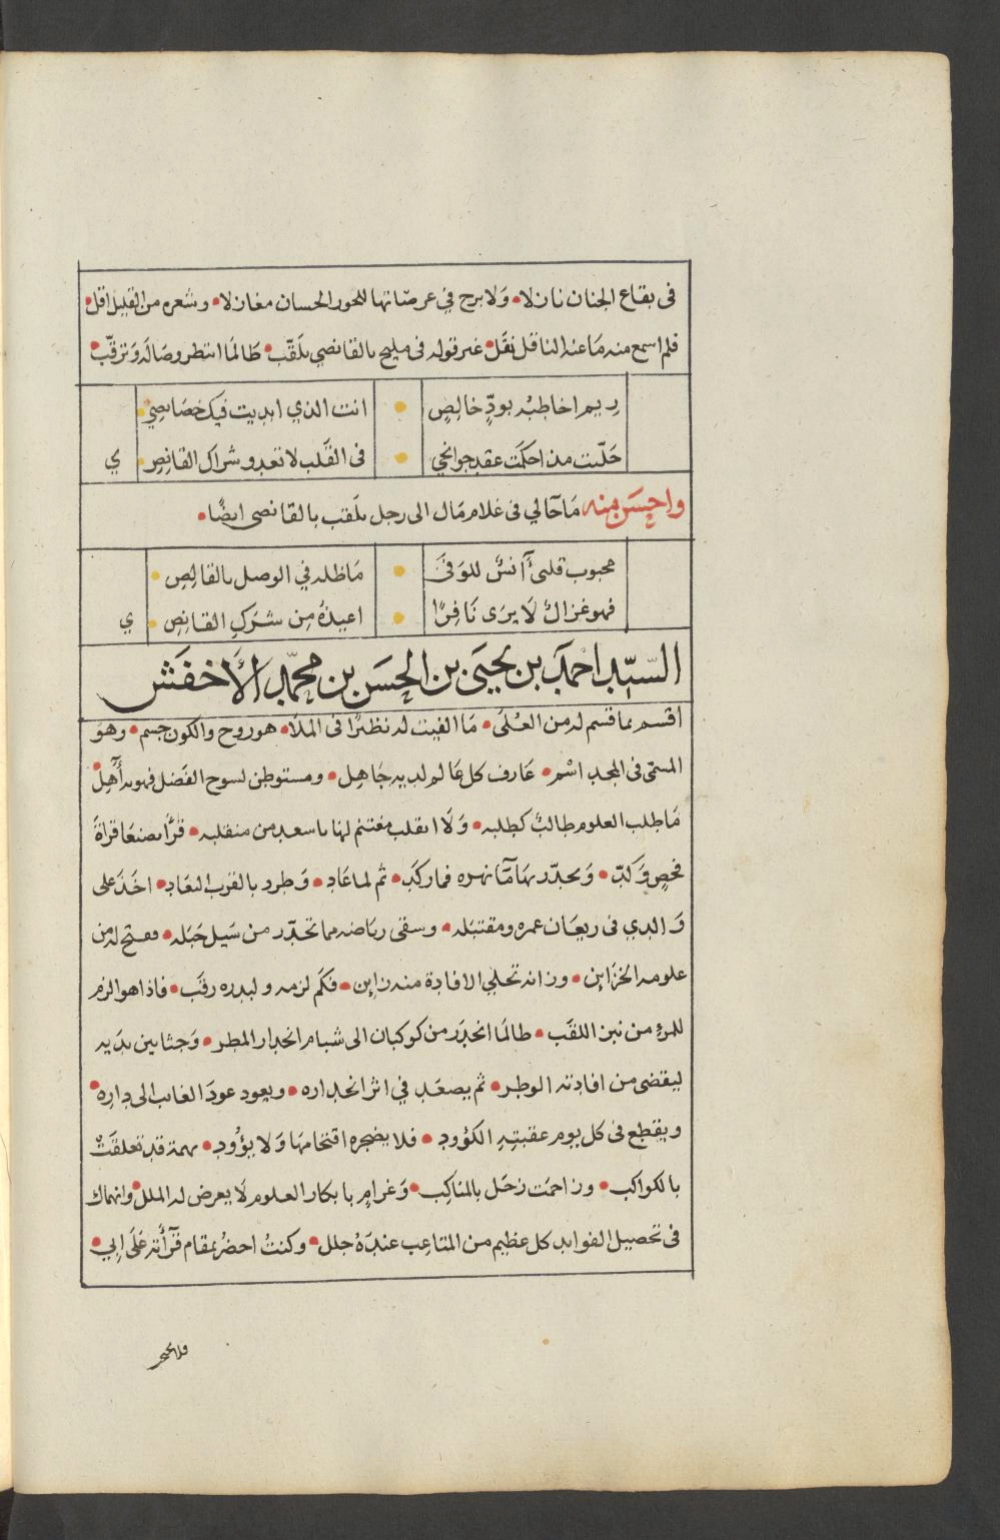 فى بقاع الجنان نازلا • وَلا برح في عرصَاتها للحور الحسان مغازلا • وشعره من القليل اقل •
فلم اسمع منه مَا عنه الناقل نقَل • غير قوله فى مليح بالقانصي يلَقّب • طَالمَا انتظر وصَالَه وَترقّب •
رِيم اخاطبُه بودٍّ خالِصٍ • انت الذي ابديت فيك خصَايصِيْ •
حَلّيت مذ احكَمَت عقد جوانحي • فى القَلب لا تعدو شراك القانِصِ • ي
واحسَن منه مَا حَالي فى غلام مَال الى رجل يلَقب بالقانصى ايضًا •
محبوب قلبىْ آنسٌ للوَفىَ • مَا ظله في الوصل بالقالِصِ •
فهو غزالٌ لَا يرَى نَافِرًا • اعيذهُ مِن شَرَكِ القانِصِ • ي
السّيّد احمَد بن يحيَى بن الحسَن بن محمّد الأخفَش
اقسم بما قسم له من العُلَى • مَا الفيت له نظيرًا فى الملَا • هو روح والكون جسم • وهوَ
المسمّى فى المجد اسْم • عَارف كل عَالم لديه جَاهِل • ومستوطن لسوح الفَضل فهو به أهِلٌ •
مَا طلب العلوم طالبٌ كطلبه • وَلَا انقلب مغتنم لها باسعد من منقلبه • قرَأ بصنعَا قراةَ
فحصٍ وَكدّ • وَتحدّر بهَا مَاَّ نهره فما ركَد • ثم لما عَاد • وَطرد بالقرب البعَاد • اخَذَ على
وَالدي فى ريعَان عمره ومقتبَله • وسقى ريَاضه مما تحدّر من سَيل جَبَله • ففتح له من
علومه الخزَاين • وزانه تحلي الافادة منه زاين • فكَم لزمه ولبدره رقَب • فاذا هو الزم
للمرءِ من نبز اللقَب • طالمَا انحدَر من كوكبان الى شبام انحدار المطر • وَجثا بين يدَيه
ليقضى من افادته الوطر • ثم يصعَد في اثر انحداره • ويعود عودَ الغائب الى دارِه •
ويقطع فى كل يوم عقبتِهِ الكؤود • فلا يضجره اقتحامهَا وَلا يؤُود • بهمة قد تعلقَتْ
بالكواكب • وزاحمَت زحَل بالمنَاكِب • وَغرامٍ بابكار العلوم لَا يعرض له الملل • وانهماك
فى تحصيل الفوايد كل عظيم من المتاعِب عندَهُ جلل • وكنتُ احضرُ بمقام قرَأتِه عَلَى ابِي •